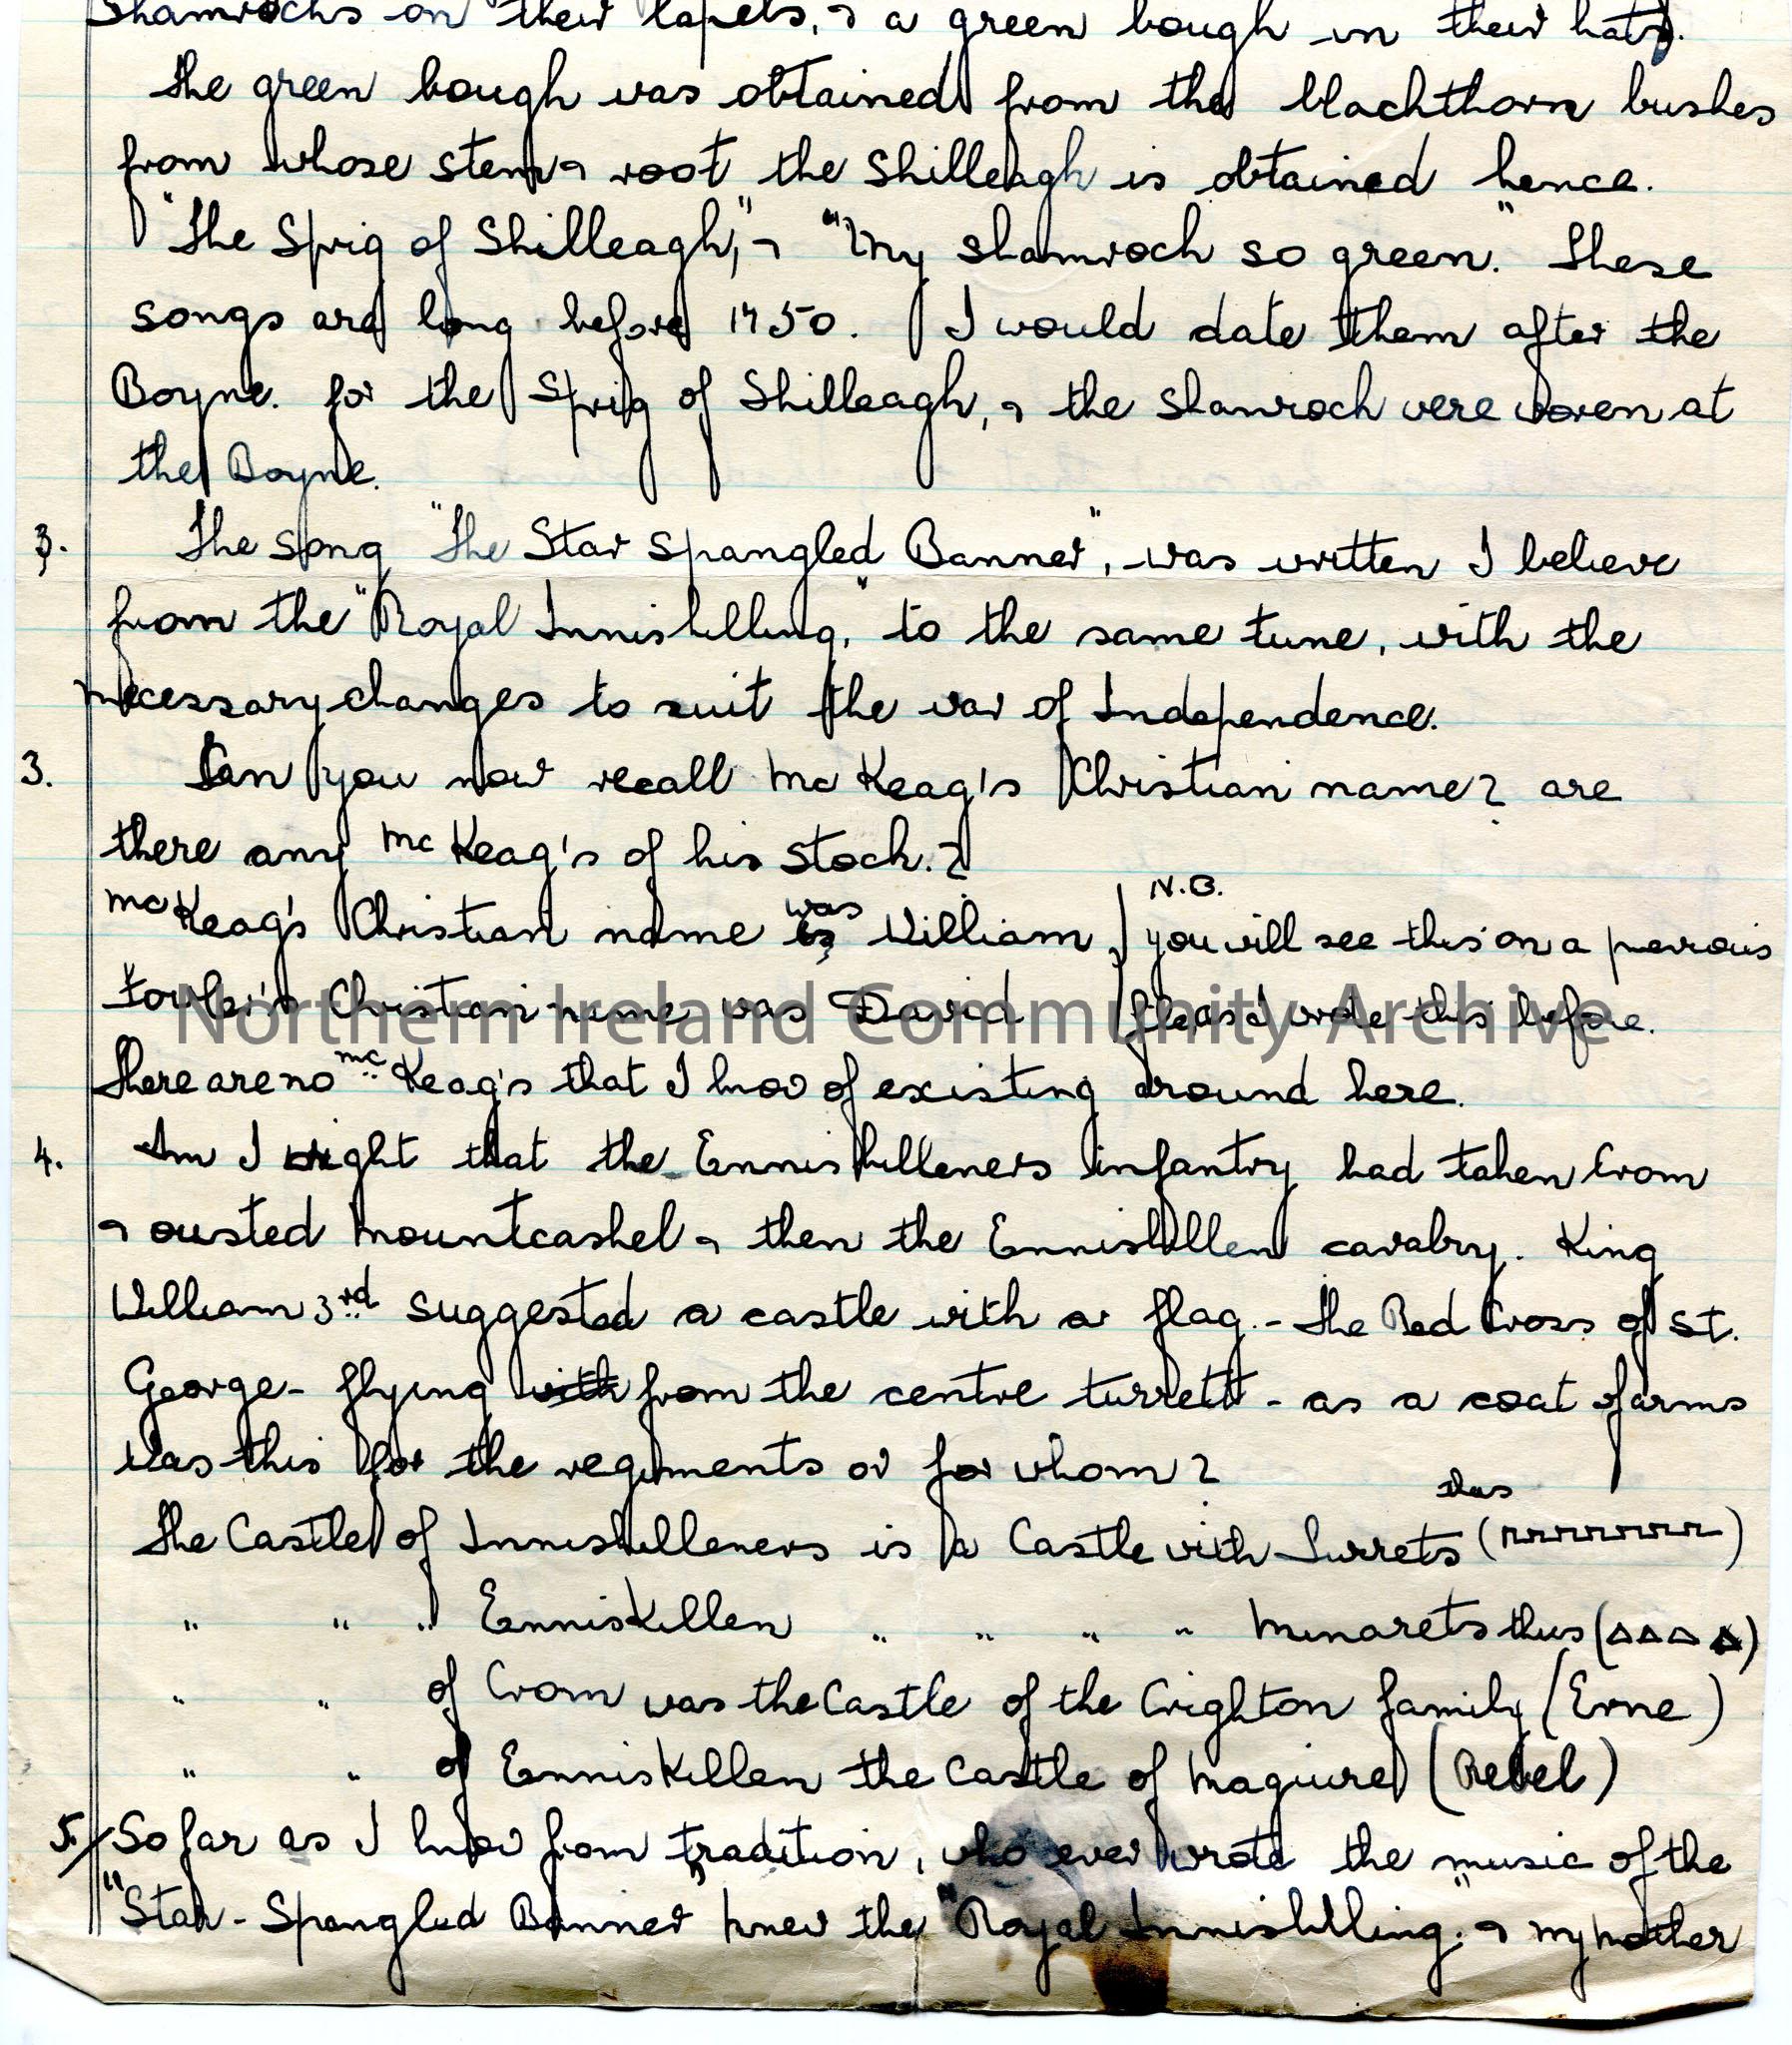 Shamrocks on their lapels, & a green bough in their hats.
The green bough was obtained from the blackthorn bushes
from whose stem & root the Shilleagh is obtained hence.
"The Sprig of Shilleagh," & "My shamrock so green." These
songs are long before 1750. I would date them after the
Boyne. for the Sprig of Shilleagh, & the shamrock were woren at
the Boyne.
3. The song "The Star Spangled Banner", was written I believe
from the "Royal Inniskilling," to the same tune, with the
necessary changes to suit the war of Independence.
3. Can you now recall McKeag's Christian name? are
there any McKeag's of his stock.?
N.B.
McKeag's Christian name was William, you will see this on a previous
Christian name was David I wrote this before.
Northern Ireland Community Archive
There are no McKeag's that I know of existing around here.
4. Am I right that the Enniskilleners infantry had taken Crom
& ousted Mountcashel & then the Enniskillen cavalry. King
William 3rd suggested a castle with a flag. - the Red Cross of St.
George - flying with from the centre turrett - as a coat of arms
Was this for the regiments or for whom?
thus
The Castle of Inniskilleners is a Castle with Turrets ( )
" " " Enniskillen " " " " Minarets thus (△△△△)
" " of Crom was the Castle of the Crighton family (Erne)
" " of Enniskillen the Castle of Maguire (Rebel)
5/ So far as I know from tradition, who ever wrote the music of the
"Star-Spangled Banner" knew the "Royal Inniskilling." & my mother